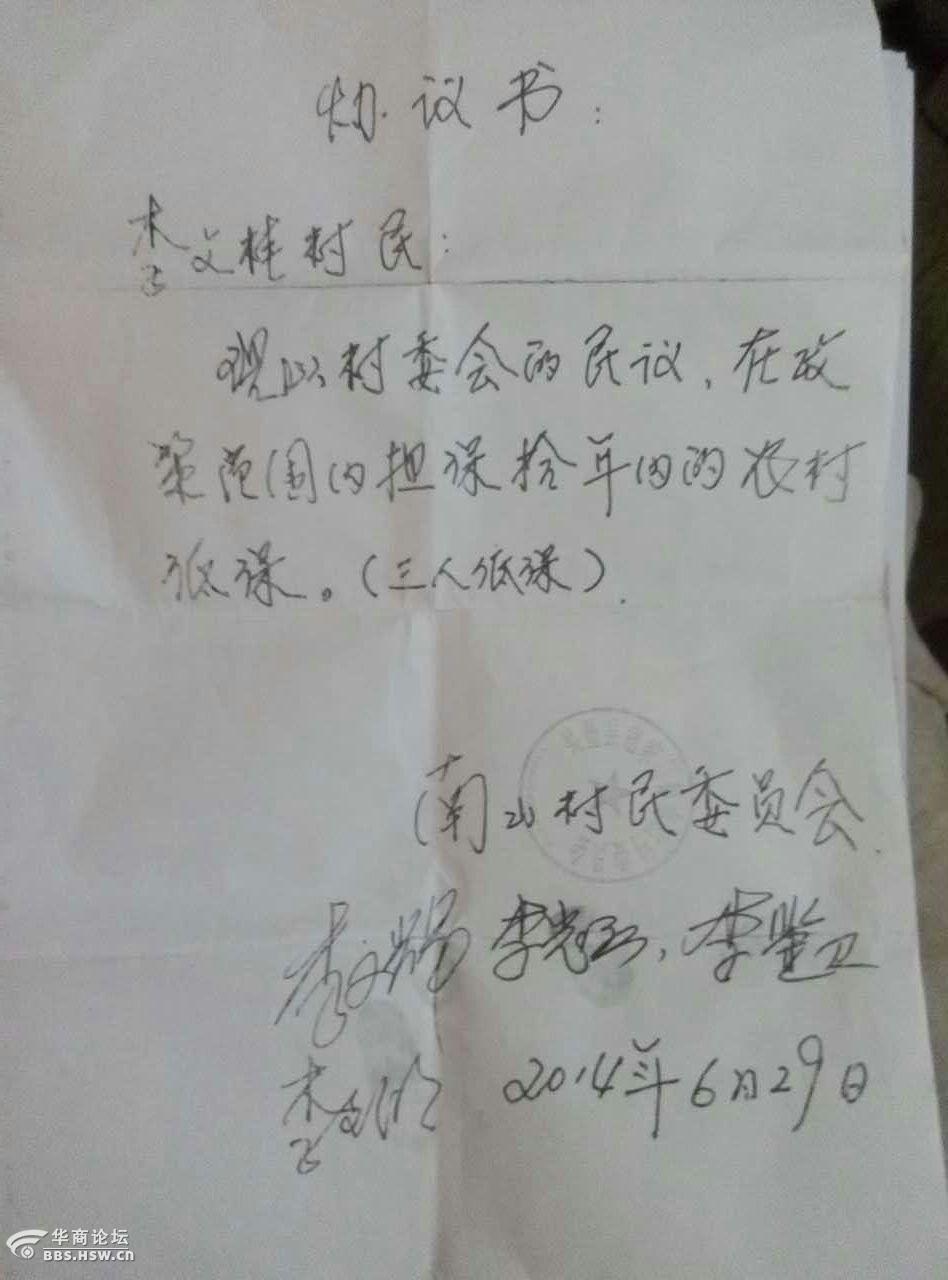 协议书：
李文桂村民：
现以村委会的民议、在政
策范围内担保拾年内的农村
低保。（三人低保）.
南山村民委员会.
李 李 , 李 卫
李 2014年6月29日
华商论坛
BBS.HSW.CN